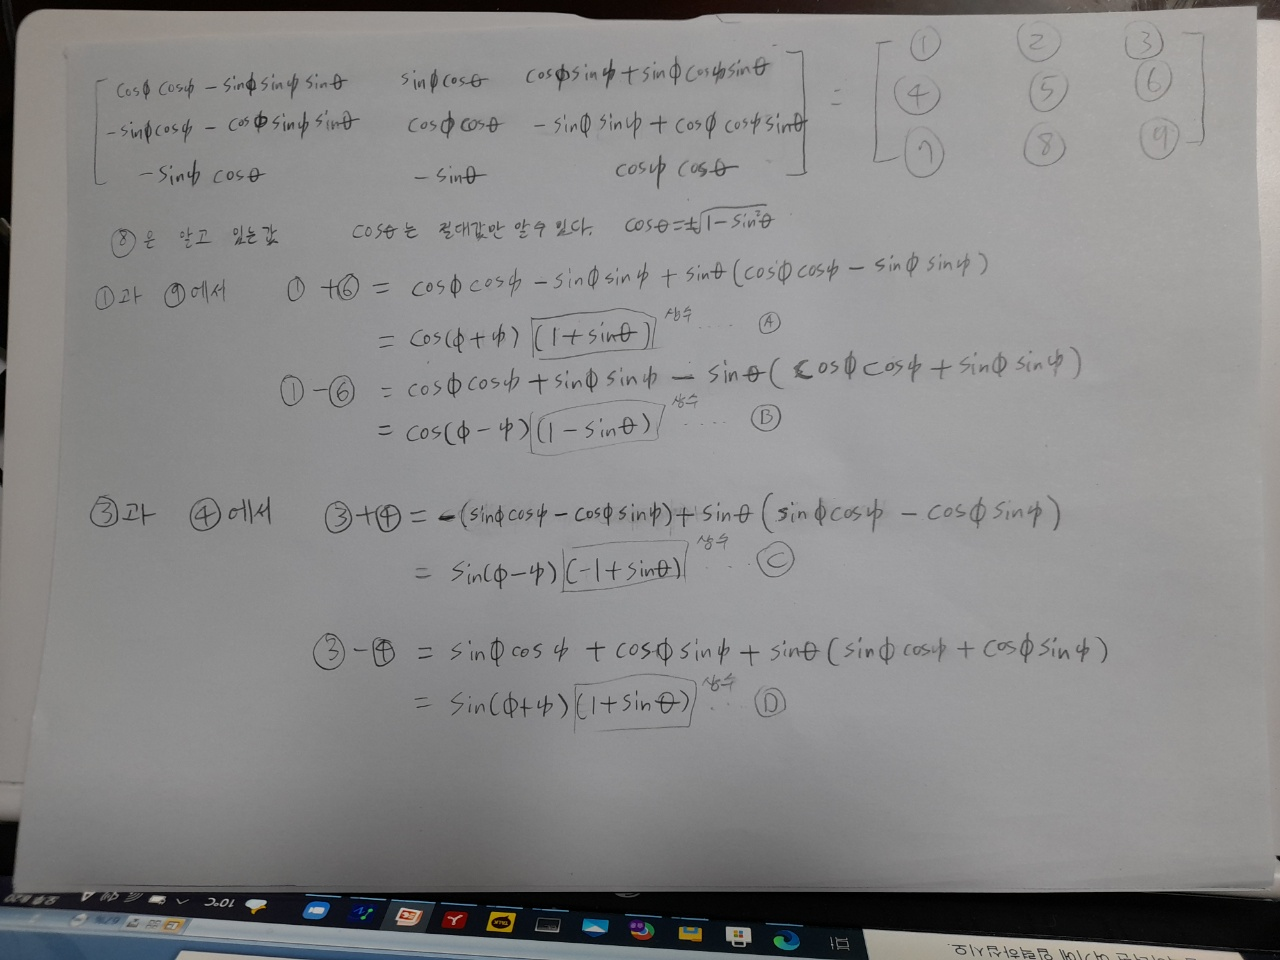 cosφ cosψ - sinφ sinψ sinθ sinφ cosθ cosφ sinψ + sinφ cosψ sinθ = ① ② ③
-sinφ cosψ - cosφ sinψ sinθ cosφ cosθ - sinφ sinψ + cosφ cosψ sinθ ④ ⑤ ⑥
-sinψ cosθ -sinθ cosψ cosθ ⑦ ⑧ ⑨
⑧은 알고 있는값 cosθ는 절대값만 알수 있다. cosθ=±√1-sin²θ
①과 ⑨에서 ①+⑥ = cosφ cosψ - sinφ sinψ + sinθ(cosφ cosψ - sinφ sinψ)
= cos(φ+ψ)(1+sinθ) 상수 ..... Ⓐ
①-⑥ = cosφ cosψ + sinφ sinψ - sinθ(cosφ cosψ + sinφ sinψ)
= cos(φ-ψ)(1-sinθ) 상수 .... Ⓑ
③과 ④에서 ③+④ = -(sinφ cosψ - cosφ sinψ) + sinθ(sinφ cosψ - cosφ sinψ)
= sin(φ-ψ)(-1+sinθ) 상수 ... Ⓒ
③-④ = sinφ cosψ + cosφ sinψ + sinθ(sinφ cosψ + cosφ sinψ)
= sin(φ+ψ)(1+sinθ) 상수 ... Ⓓ
10°C
TALK